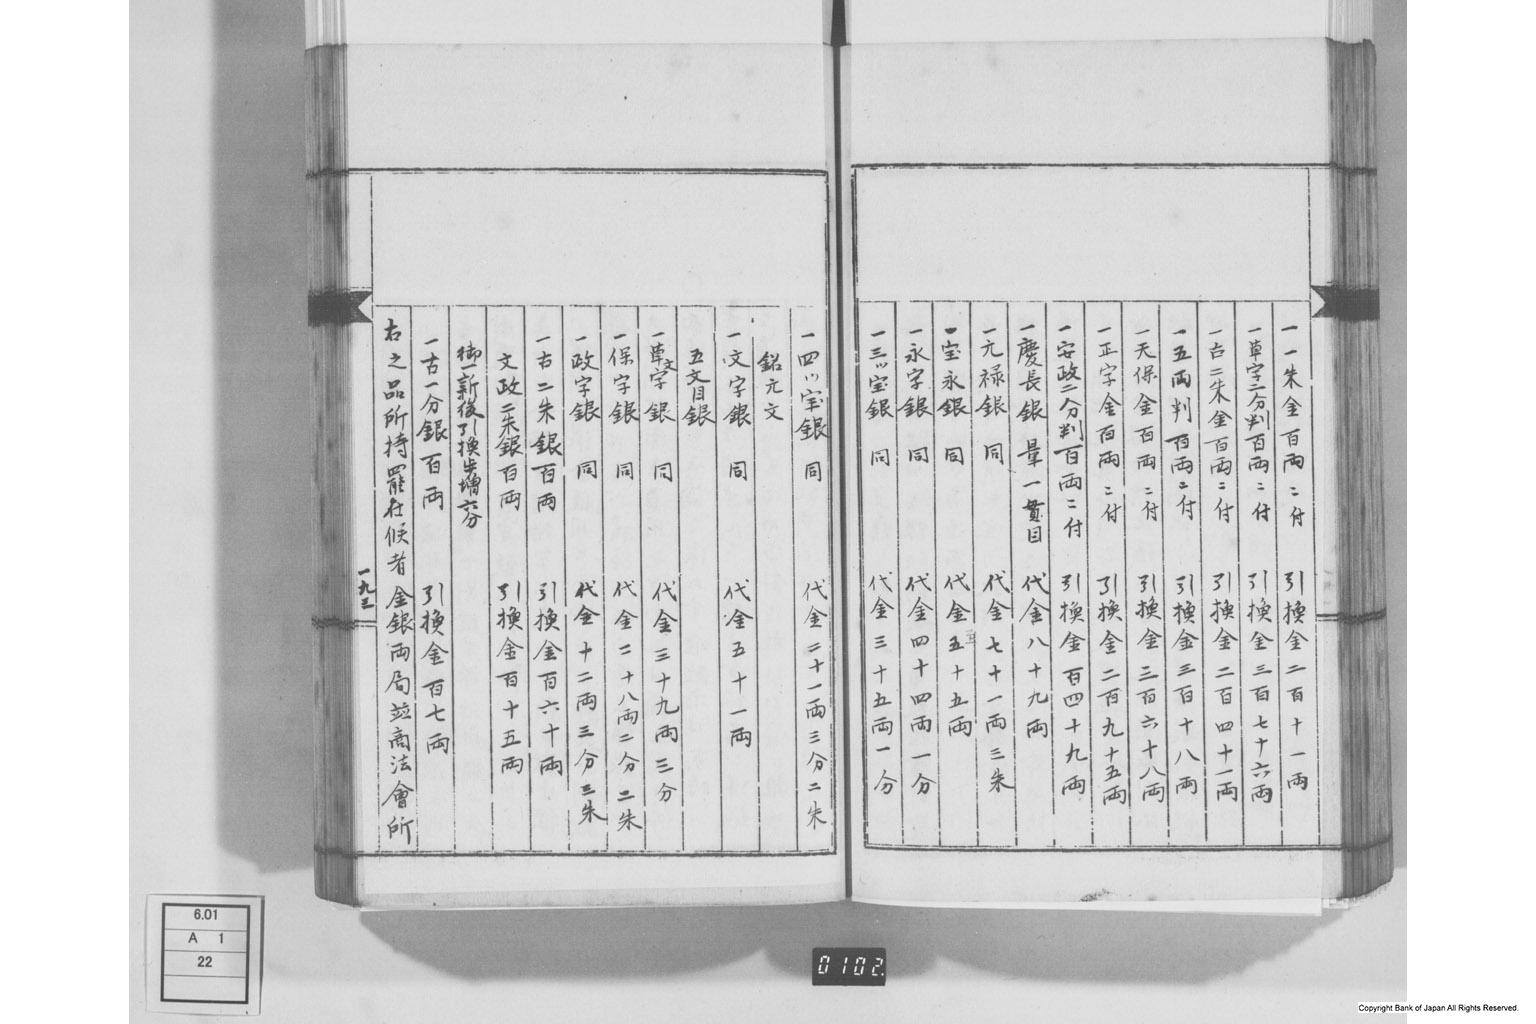 一一朱金百両ニ付　引換金二百十一両
一草字二分判百両ニ付　引換金三百七十六両
一古二朱金百両ニ付　引換金二百四十一両
一五両判百両ニ付　引換金三百十八両
一天保金百両ニ付　引換金三百六十八両
一正字金百両ニ付　引換金二百九十五両
一安政二分判百両ニ付　引換金百四十九両
一慶長銀　量一貫目　代金八十九両
一元禄銀　同　代金七十一両三朱
一宝永銀　同　代金五十五両
一永字銀　同　代金四十四両一分
一三ツ宝銀　同　代金三十五両一分
一四ツ宝銀　同　代金二十一両三分二朱
銘元文
一文字銀　同　代金五十一両
五文目銀
一草文字銀　同　代金三十九両三分
一保字銀　同　代金二十八両二分二朱
一政字銀　同　代金十二両三分三朱
一古二朱銀百両　引換金百六十両
文政二朱銀百両　引換金百十五両
御一新後引換歩増六分
一古一分銀百両　引換金百七両
右之品所持罷在候者金銀両局並商法會所
一九三
6.01
A 1
22
0102.
Copyright Bank of Japan All Rights Reserved.